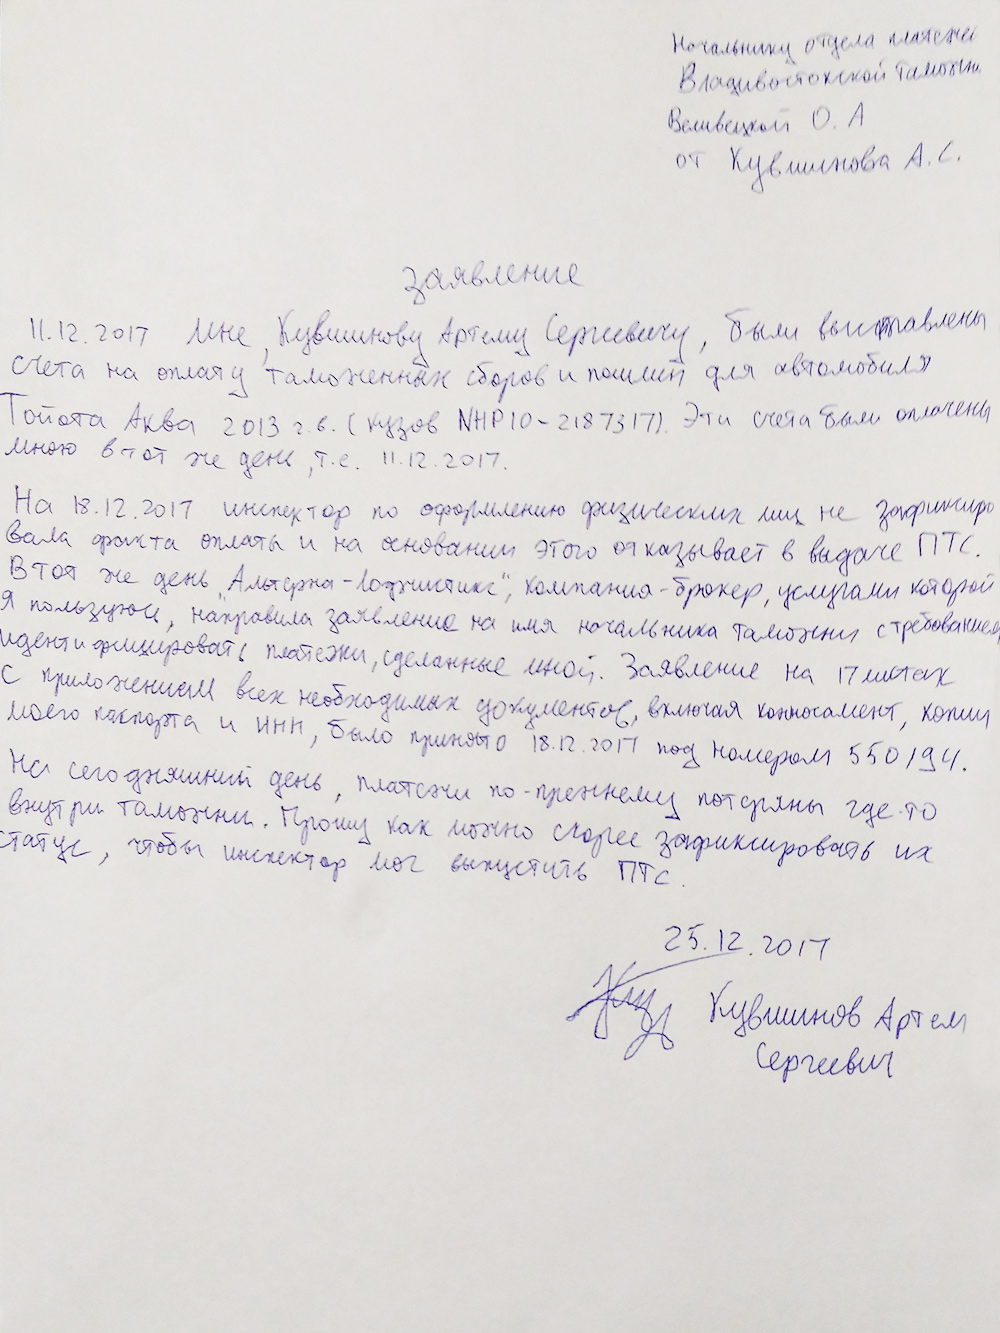 Начальнику отдела платежей
Владивостокской таможни
Величецкой О. А
от Кувшинова А. С.
Заявление
11.12.2017 Мне, Кувшинову Артему Сергеевичу, были выставлены
счета на оплату таможенных сборов и пошлин для автомобиля
Тойота Аква 2013 г.в. (кузов NHP10-2187317). Эти счета были оплачены
мною в тот же день, т.е. 11.12.2017.
На 18.12.2017 инспектор по оформлению физических лиц не зафиксиро
вала факта оплаты и на основании этого отказывает в выдаче ПТС.
В тот же день "Альтерна-Лоджистикс", компания-брокер, услугами которой
я пользуюсь, направила заявление на имя начальника таможни с требованием
идентифицировать платежи, сделанные мной. Заявление на 17 листах
с приложением всех необходимых документов, включая коносамент, копии
моего паспорта и ИНН, было принято 18.12.2017 под номером 55019ч.
На сегодняшний день, платежи по-прежнему потеряны где-то
внутри таможни. Прошу как можно скорее зафиксировать их
статус, чтобы инспектор мог выпустить ПТС.
25.12.2017
Кувшинов Артем
Сергеевич